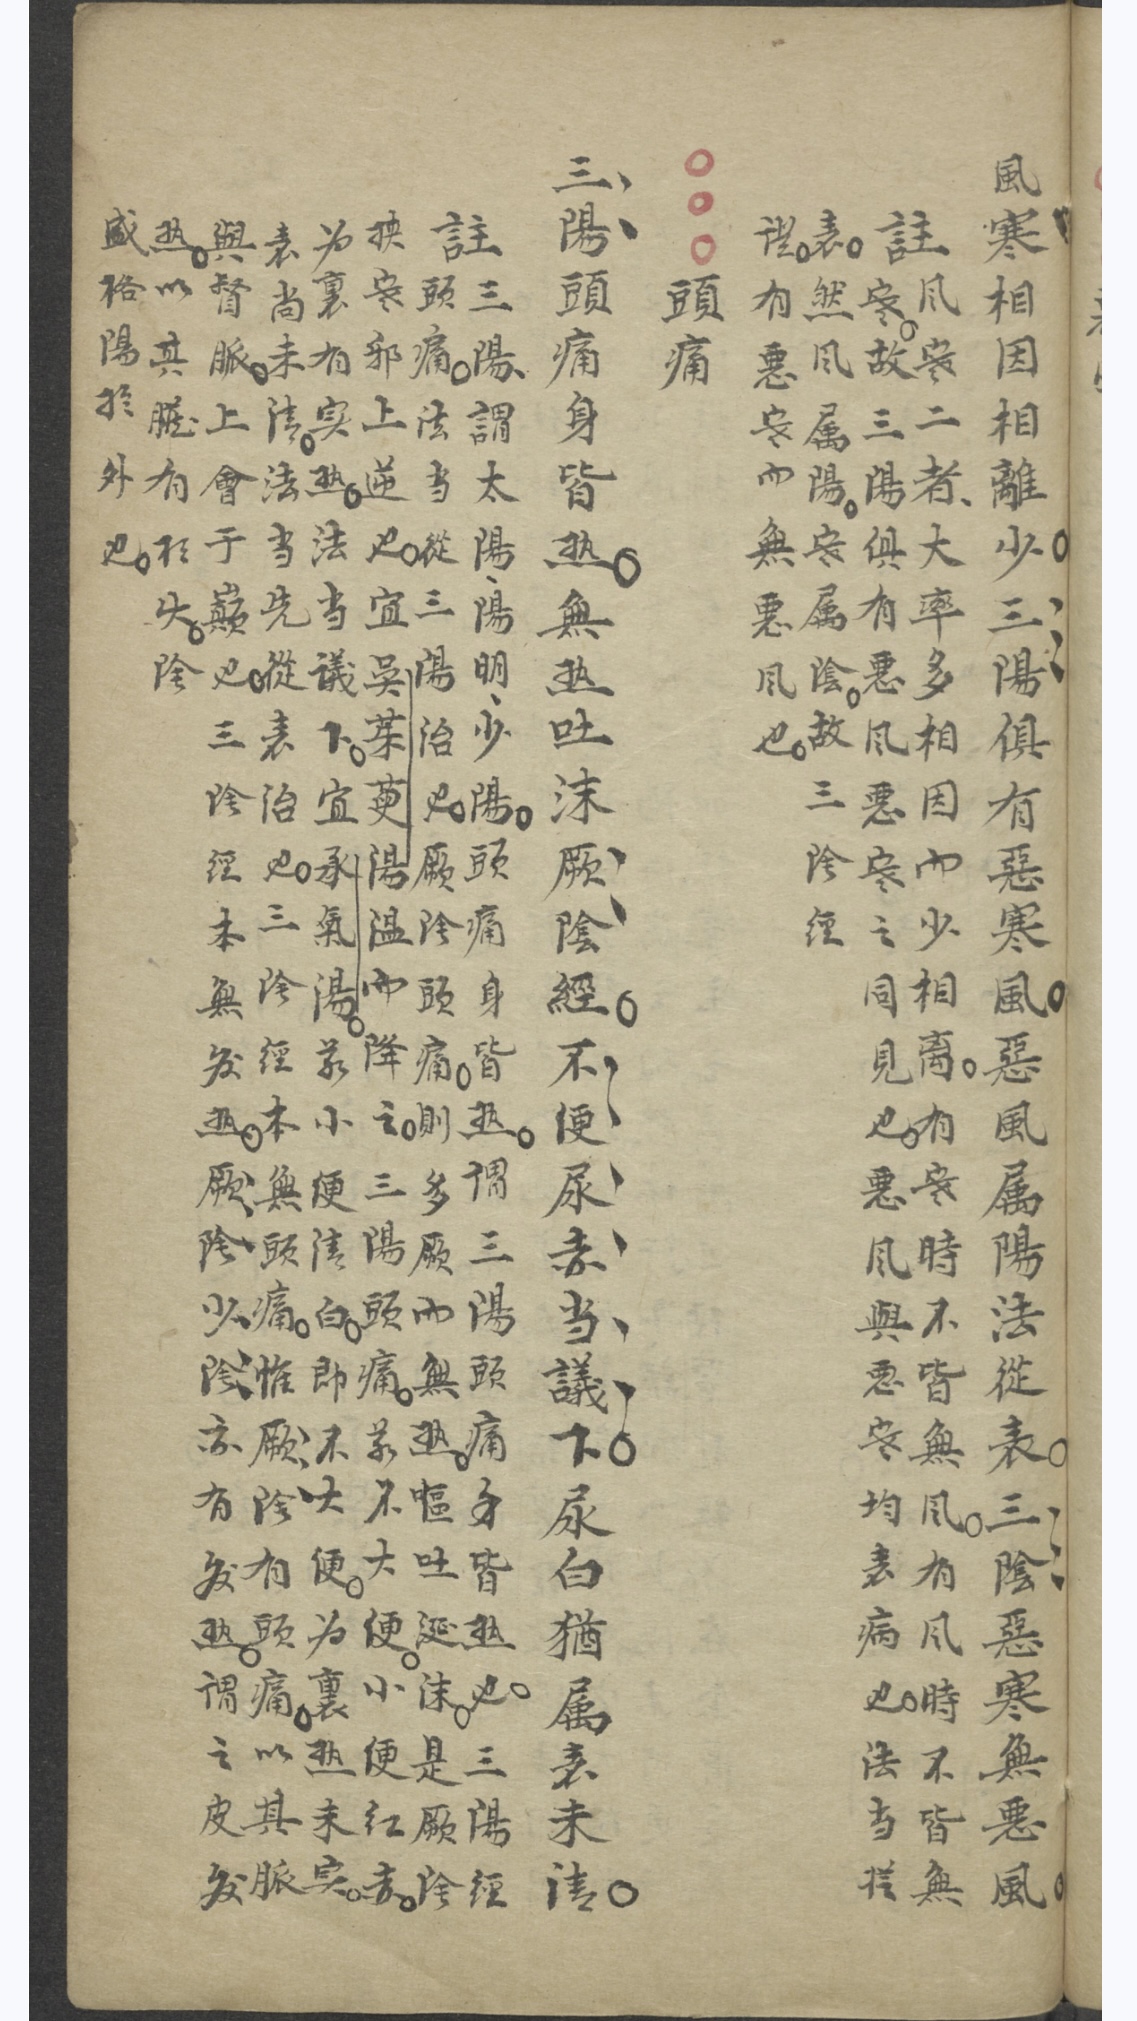 風寒相因相離少三陽俱有惡寒風惡風属陽法從表三陰惡寒無惡風
註风寒二者大率多相因而少相离有寒時不皆無风有风時不皆無
寒故三陽俱有惡风惡寒之同見也惡风與惡寒均表病也法当從
表然风属陽寒属陰故三陰經
證有惡寒而無惡风也
頭痛
三陽頭痛身皆热無热吐沫厥陰經不便尿赤当議下尿白猶属表未清
註三陽謂太陽陽明少陽頭痛身皆热谓三陽頭痛身皆热也三陽經
頭痛法当從三陽治也厥陰頭痛則多厥而無热嘔吐涎沫是厥陰
挾寒邪上逆也宜吴茱萸湯温而降之三陽頭痛若不大便小便红赤
为裏有实热法当議下宜承氣湯若小便清白即不大便为裏热未实
表尚未清法当先從表治也三陰經本無頭痛惟厥陰有頭痛以其脈
與督脈上會于巔也三陰經本無发热厥陰少陰亦有发热谓之皮发
热以其臟有於失陰
盛格陽於外也